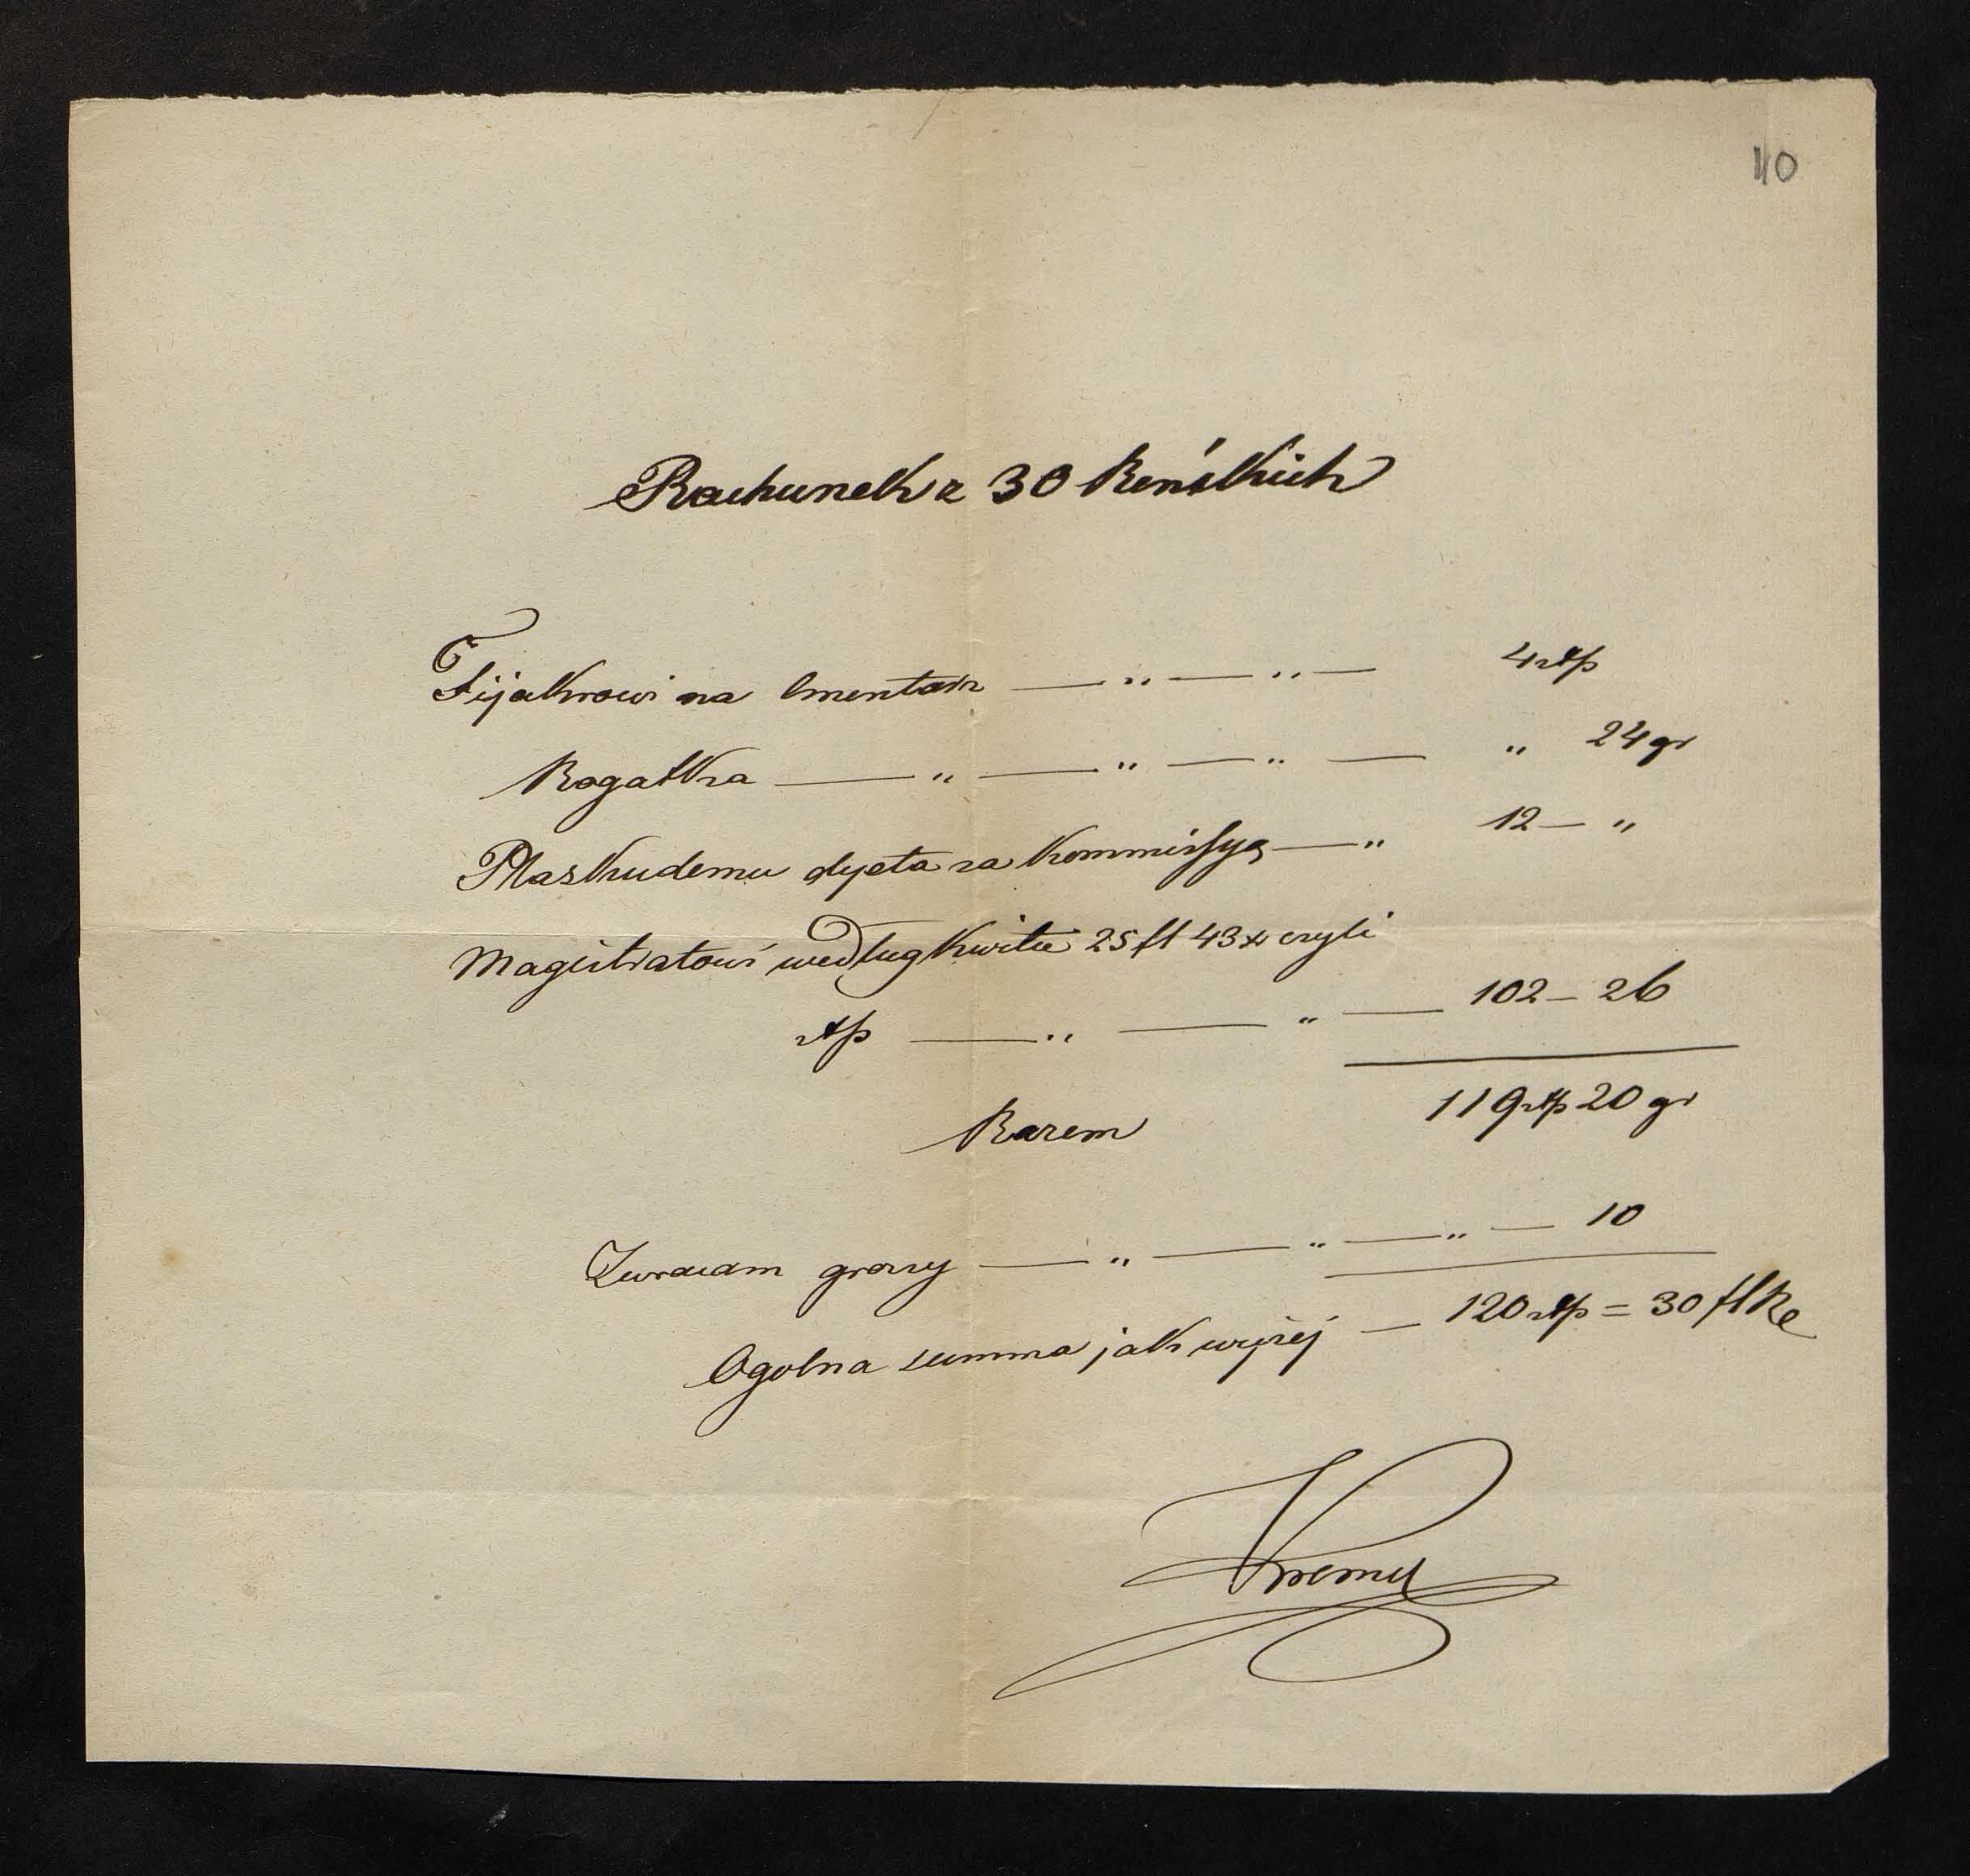 110
Rachunek z 30 Reńskich
Fijakrowi na Cmentarz — „ — „ — 4 złp
Rogatka — „ — „ — „ — „ 24 gr
Płaskudemu dyeta za Kommissyą — „ 12 — „
Magistratowi według Kwitu 25 fl 43 x czyli
złp — „ — „ — 102 — 26
Razem 119 złp 20 gr
Zwracam groszy — „ — „ — „ — 10
Ogolna summa jak wyżej — 120 złp = 30 fl Re
Kremer